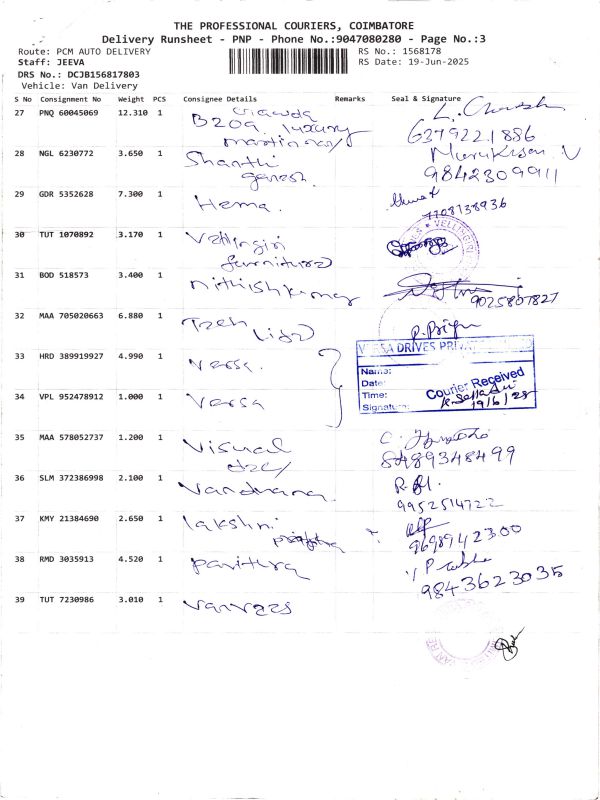 THE PROFESSIONAL COURIERS, COIMBATORE
Delivery Runsheet - PNP - Phone No.:9047080280 - Page No.:3
Route: PCM AUTO DELIVERY
RS No.: 1568178
Staff: JEEVA
RS Date: 19-Jun-2025
DRS No.: DCJB156817803
Vehicle: Van Delivery
S No Consignment No Weight PCS Consignee Details Remarks Seal & Signature
27 PNQ 60045069 12.310 1 B209 luxury
6379221886
28 NGL 6230772 3.650 1 Shanthi
ganesh
Murukesan V
9842309911
29 GDR 5352628 7.300 1 Hema.
7708138936
30 TUT 1070892 3.170 1 Vellingiri
furniture
VELLINGIRI
31 BOD 518573 3.400 1 Nithishkumar
9025807827
32 MAA 705020663 6.880 1
P. Priya
33 HRD 389919927 4.990 1 Versa.
VERSA DRIVES
Name:
Date:
Time:
Signature:
Courier Received
19/6/25
34 VPL 952478912 1.000 1 Versa
35 MAA 578052737 1.200 1 Visual
8489348499
36 SLM 372386998 2.100 1 Vandhana.
9952514722
37 KMY 21384690 2.650 1 lakshmi
9698942300
38 RMD 3035913 4.520 1 Pavithra
9843623035
39 TUT 7230986 3.010 1